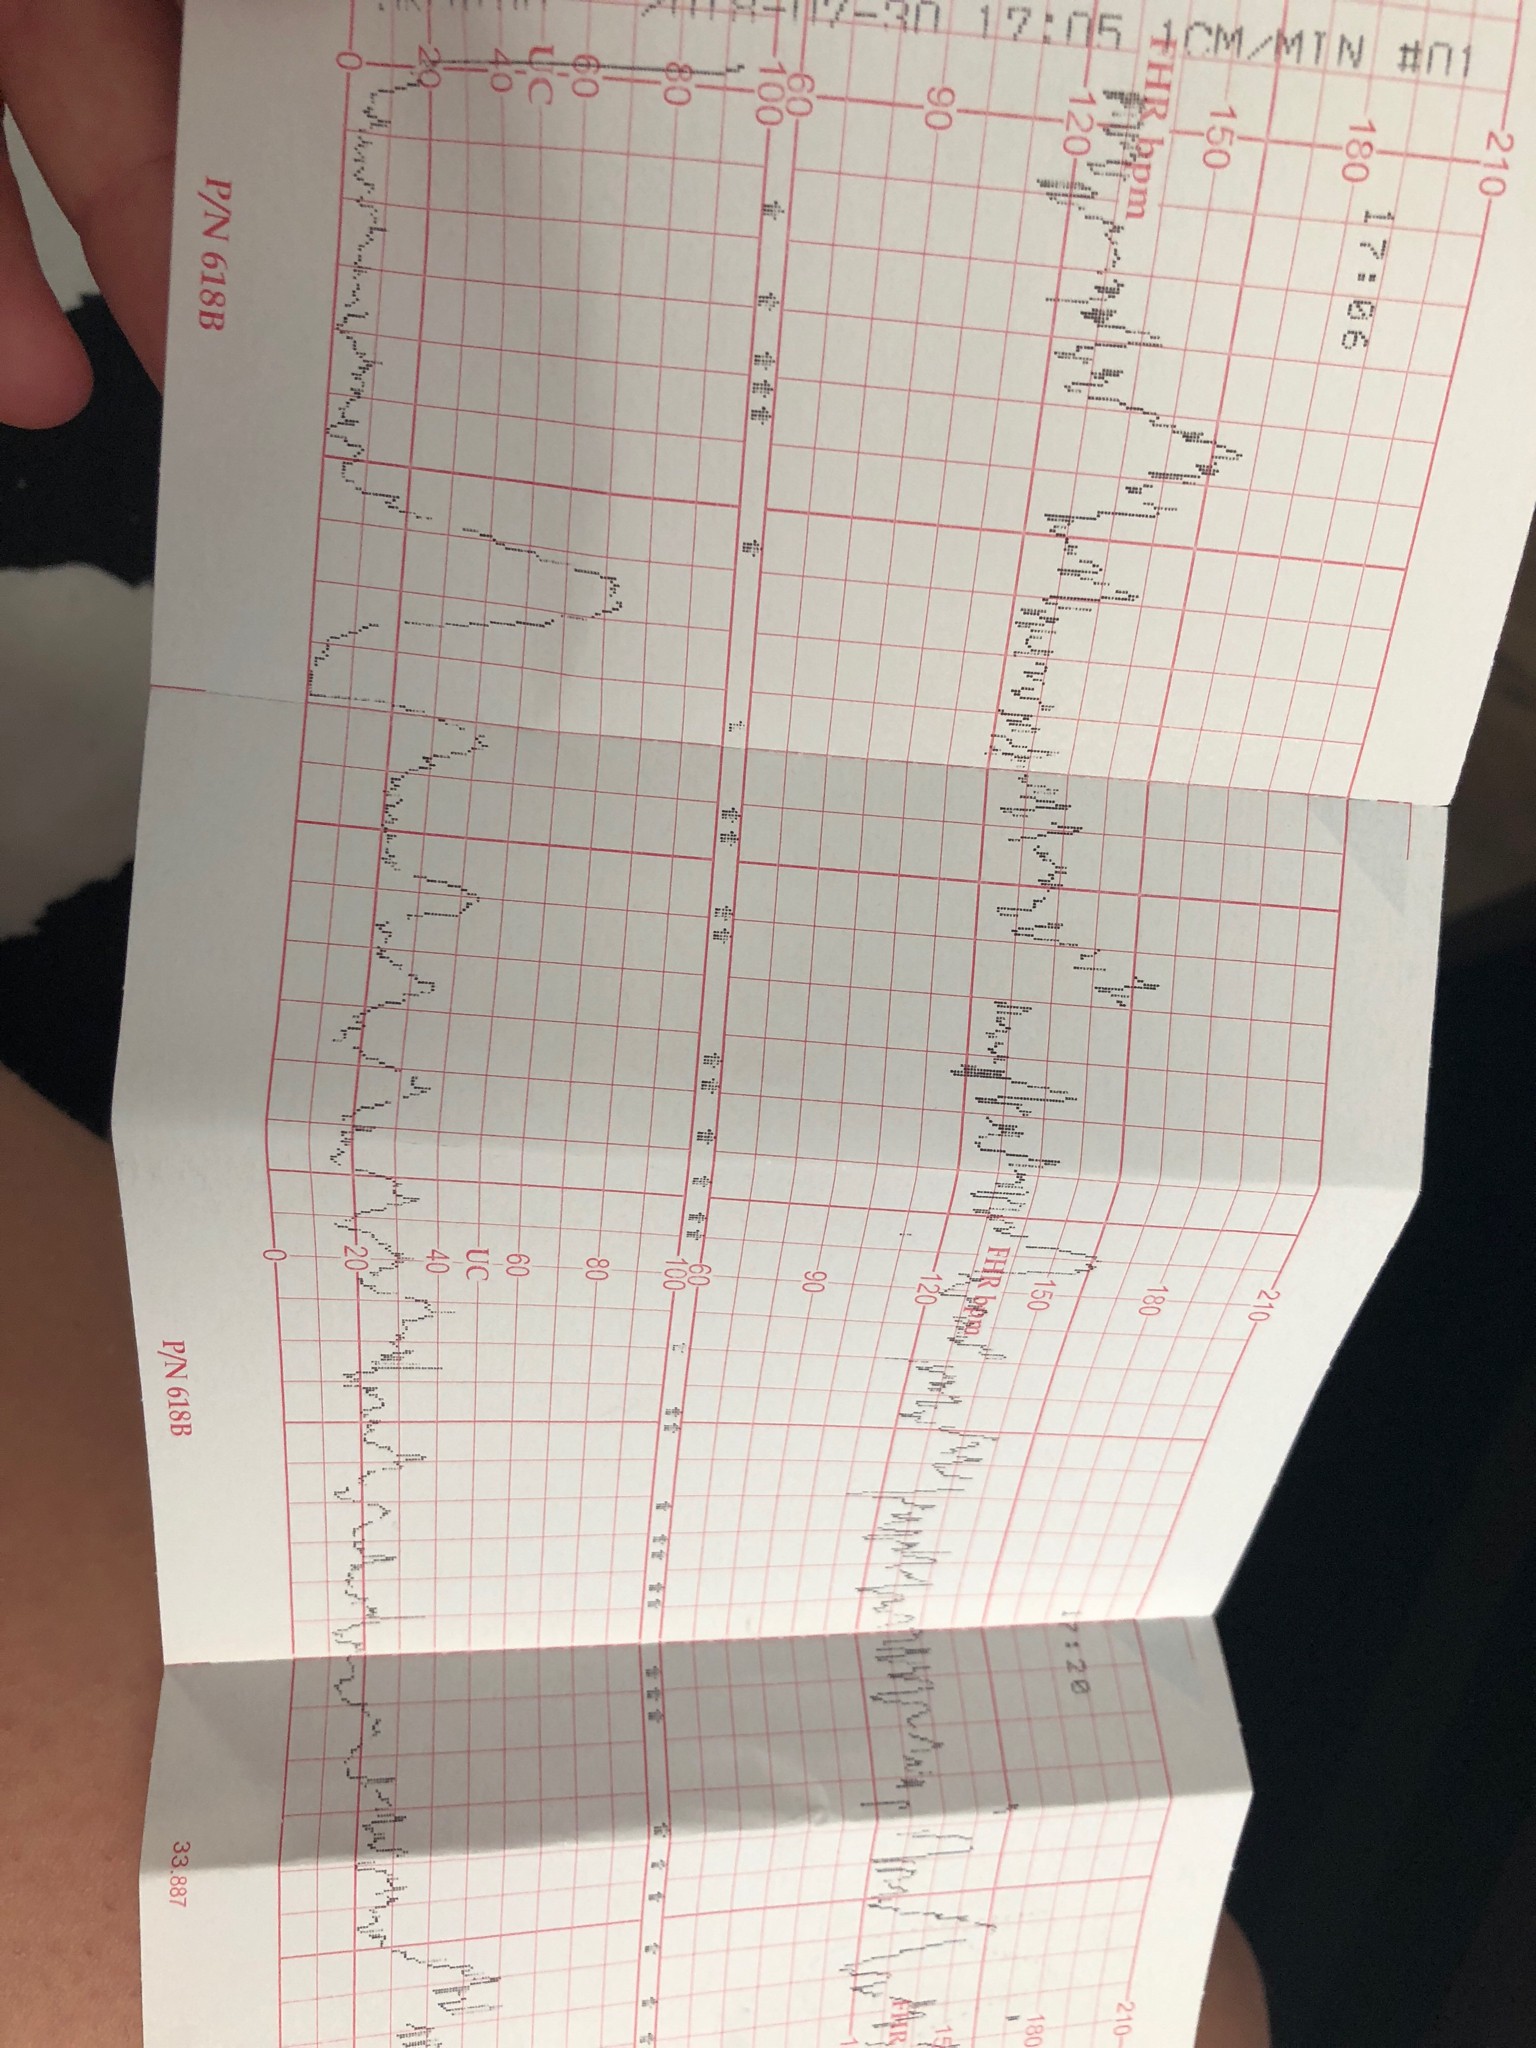 2018-07-30 17:05 1CM/MIN #01
17:06
210
180
150
FHR bpm
120
90
60
100
80
60
UC
40
20
0
P/N 618B
210
180
150
FHR bpm
120
90
60
100
80
60
UC
40
20
0
P/N 618B
17:20
210
180
FHR
33.887